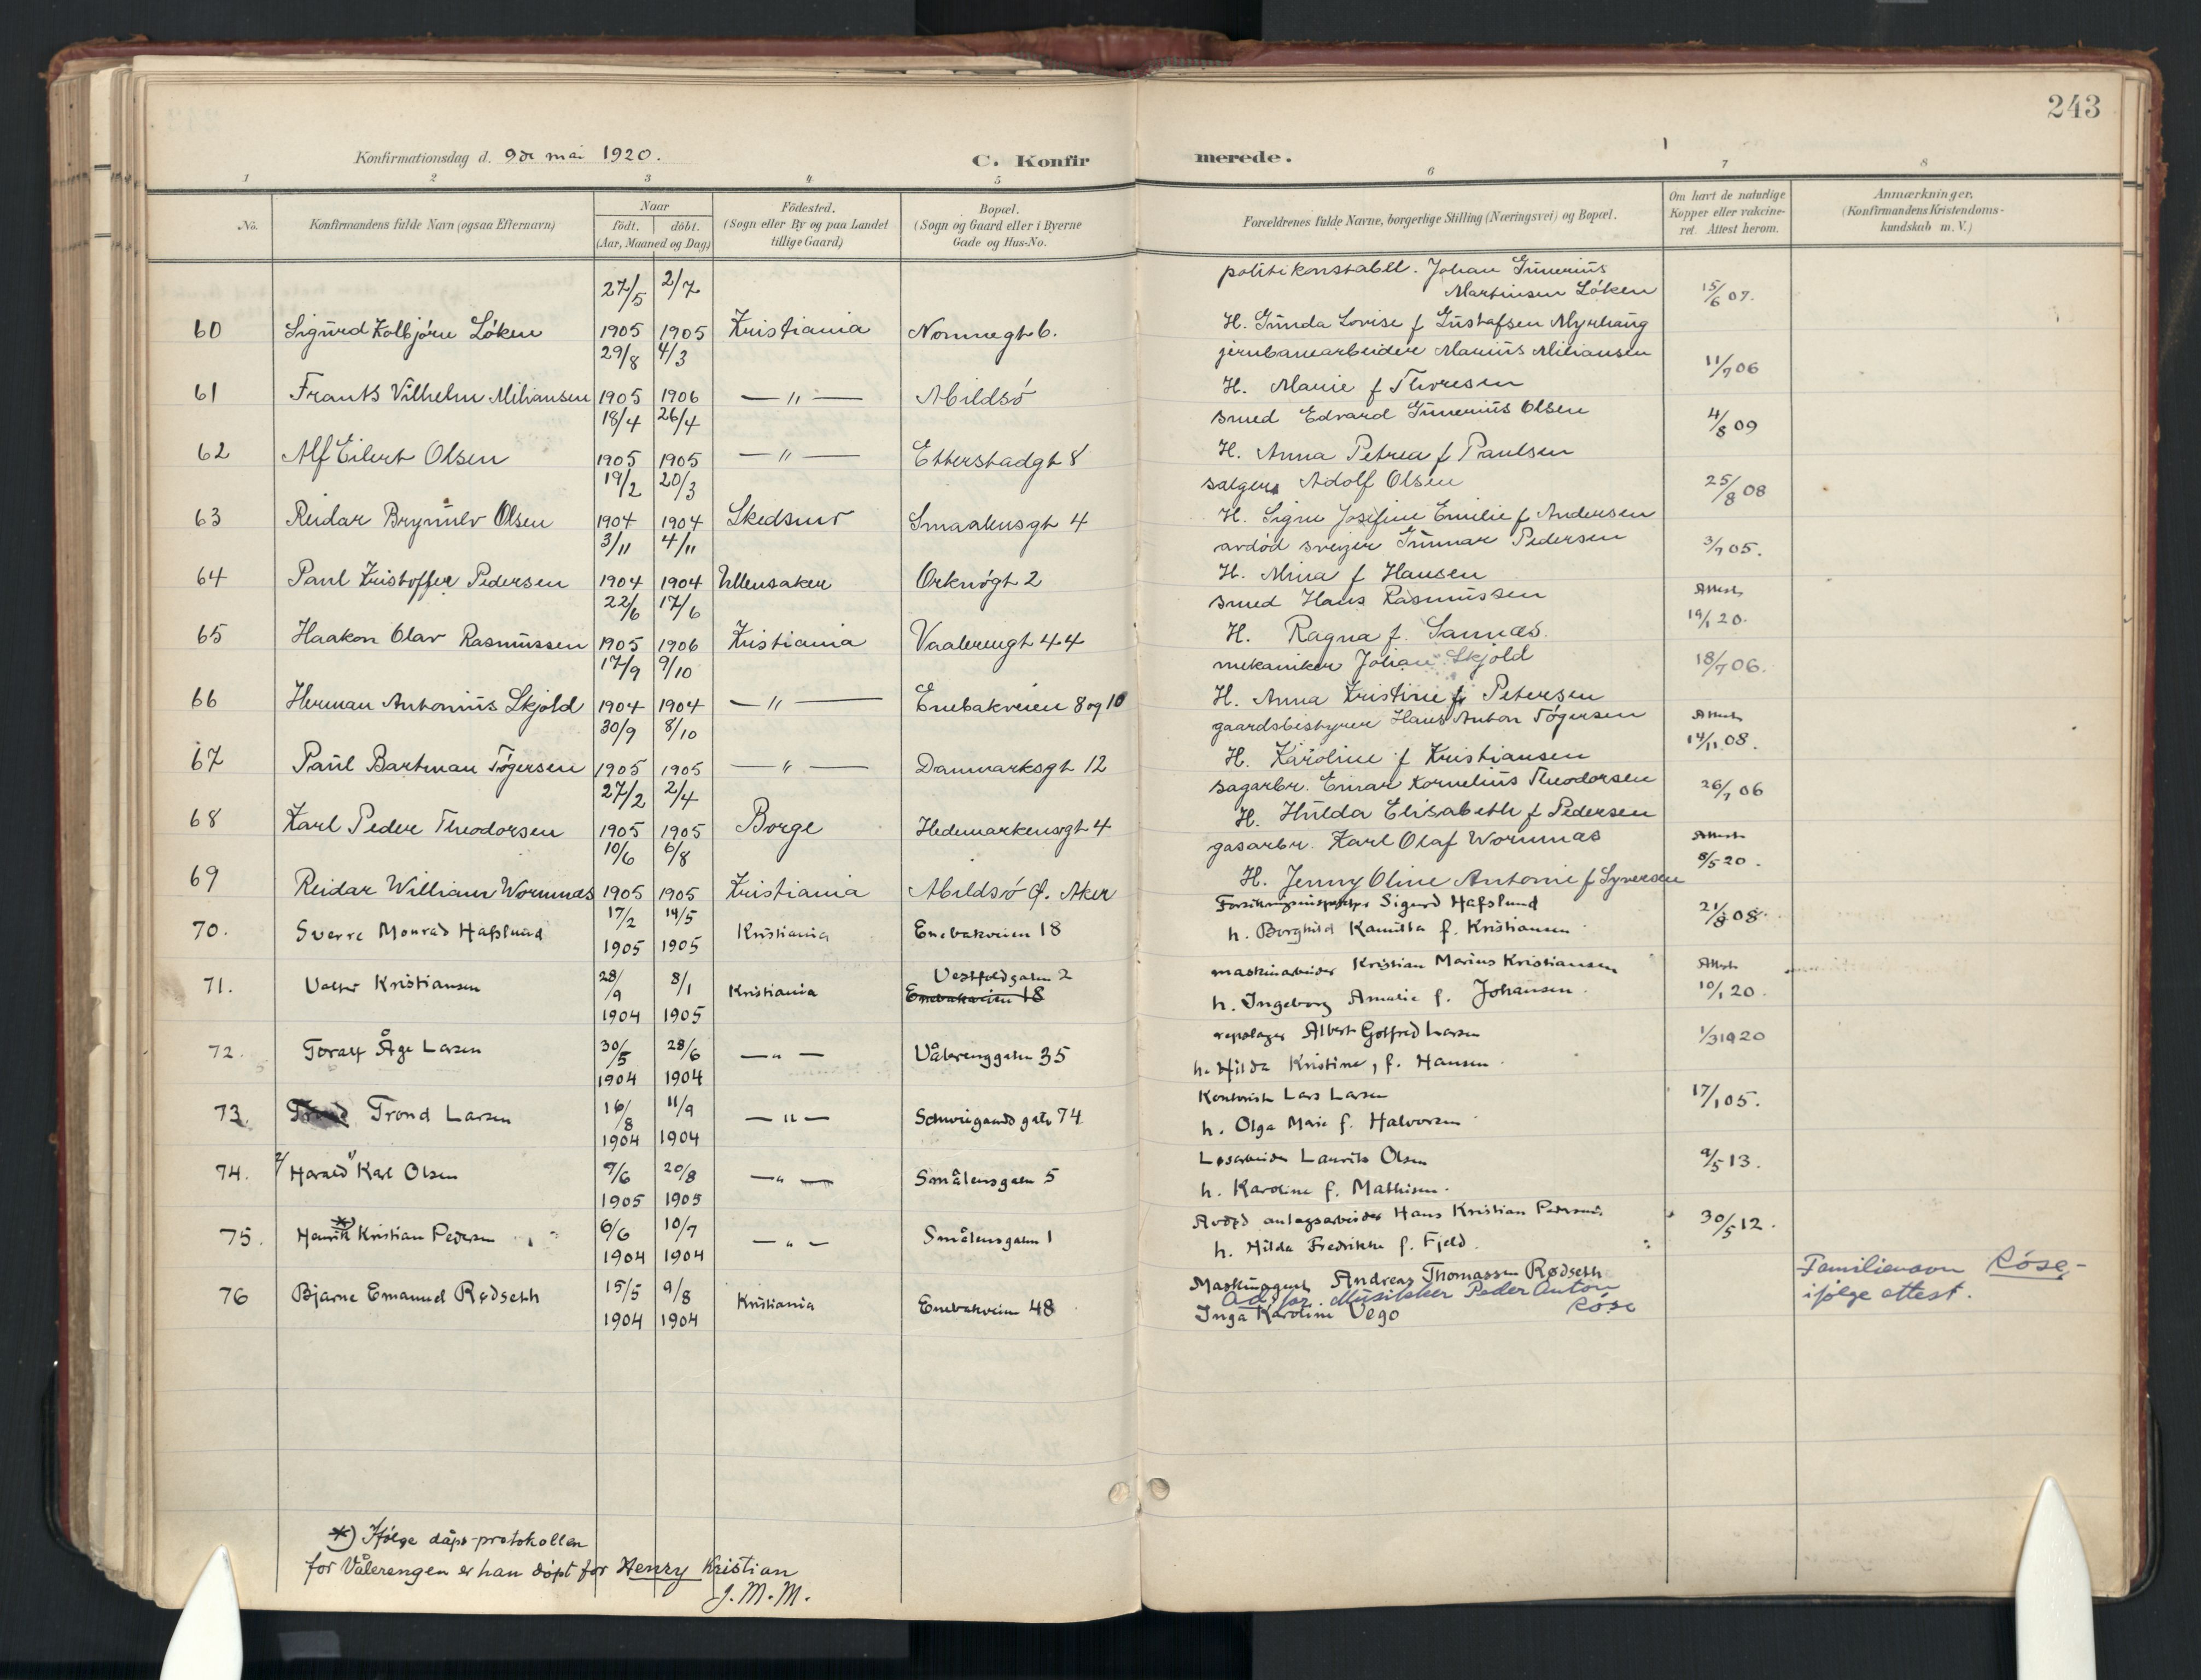 243
Konfirmationsdag d. 9de mai 1920.
C. Konfirmerede.
1 2 3 4 5 6 7 8
No.
Konfirmandens fulde Navn (ogsaa Efternavn)
Naar
født. döbt.
(Aar, Maaned og Dag)
Födested.
(Sogn eller By og paa Landet
tillige Gaard)
Bopæl.
(Sogn og Gaard eller i Byerne
Gade og Hus-No.
Forældrenes fulde Navne, borgerlige Stilling (Næringsvei) og Bopæl.
Om havt de naturlige
Kopper eller vakcine-
ret. Attest herom.
Anmærkninger.
(Konfirmandens Kristendoms-
kundskab m. V.)
27/5 2/7 politikonstabel. Johan Gunerius
Martinsen Löken 15/6 07.
60 Sigurd Kolbjörn Löken 1905 1905 Kristiania Normegt 6. H. Gunda Lovise f Gustafsen Myrhaug
29/8 4/3 jernbanearbeider Marius Miliansen 11/7 06
61 Frants Vilhelm Miliansen 1905 1906 — " — Abildsö H. Marie f Thoresen
18/4 26/4 smed Edvard Gunerius Olsen 4/8 09
62 Alf Eilert Olsen 1905 1905 — " — Etterstadgt 8 H. Anna Petrea f Paulsen
19/2 20/3 sælger Adolf Olsen 25/8 08
63 Reidar Brynulv Olsen 1904 1904 Skedsmo Smaalensgt 4 H. Signe Josefine Emilie f Andersen
3/11 4/11 avdöd sveizer Gunnar Pedersen 3/7 05.
64 Paul Kristoffer Pedersen 1904 1904 Ullensaker Orknögt 2 H. Mina f Hansen
22/6 17/6 smed Hans Rasmussen Attest
19/1 20.
65 Haakon Olav Rasmussen 1905 1906 Kristiania Vaalerengt 44 H. Ragna f. Sannæs.
17/9 9/10 mekaniker Johan Skjold 18/7 06.
66 Herman Antonius Skjold 1904 1904 — " — Enebakveien 8 og 10 H. Anna Kristine f Petersen
30/9 8/10 gaardsbestyrer Hans Anton Tögersen Attest
14/11 08.
67 Paul Bartman Tögersen 1905 1905 — " — Danmarksgt 12 H. Karoline f Kristiansen
27/2 2/4 sagarbr. Einar Kornelius Theodorsen 26/7 06
68 Karl Peder Theodorsen 1905 1905 Borge Hedemarkensgt 4 H. Hulda Elisabeth f Pedersen
10/6 6/8 gasarbr. Karl Olaf Wormnæs Attest
8/5 20.
69 Reidar William Wormnæs 1905 1905 Kristiania Abildsö Ö. Aker H. Jenny Oline Antonie f Syversen
17/2 14/5 Forsikringsinspektør Sigurd Hafslund 21/8 08.
70. Sverre Monrad Hafslund 1905 1905 Kristiania Enebakveien 18 h. Borghild Kamilla f. Kristiansen
28/9 8/1 Vestfoldgaten 2 maskinarbeider Kristian Marius Kristiansen Attest
71. Valter Kristiansen 1904 1905 Kristiania Enebakveien 18 h. Ingeborg Amalie f. Johansen. 10/1 20.
30/5 28/6 repslager Albert Gotfred Larsen 1/3 1920
72. Toralf Åge Larsen 1904 1904 — " — Vålerenggaten 35 h. Hilda Kristine, f. Hansen
16/8 11/9 Kontorist Lars Larsen 17/1 05.
73. Trond Larsen 1904 1904 — " — Schweigaards gate 74 h. Olga Marie f. Halvorsen
9/6 20/8 Løsarbeider Laurits Olsen 9/5 13.
74. 2/ Harald 1/ Karl Olsen 1905 1905 — " — Smålensgaten 5 h. Karoline f. Mathisen.
6/6 10/7 Avdød anlægsarbeider Hans Kristian Pedersen 30/5 12.
75. Henrik *) Kristian Pedersen 1904 1904 — " — Smålensgaten 1 h. Hilda Fredrikke f. Fjeld.
15/5 9/8 Maskinagent Andreas Thomassen Rødseth Familienavn Röse-
Ad. far. Musikker Peder Anton Röse ifølge attest.
76 Bjarne Emanuel Rødseth 1904 1904 Kristiania Enebakveien 48 Inga Karoline Vego
*) Ifølge dåps-protokollen
for Vålerengen er han döpt for Henry Kristian
J. M. M.